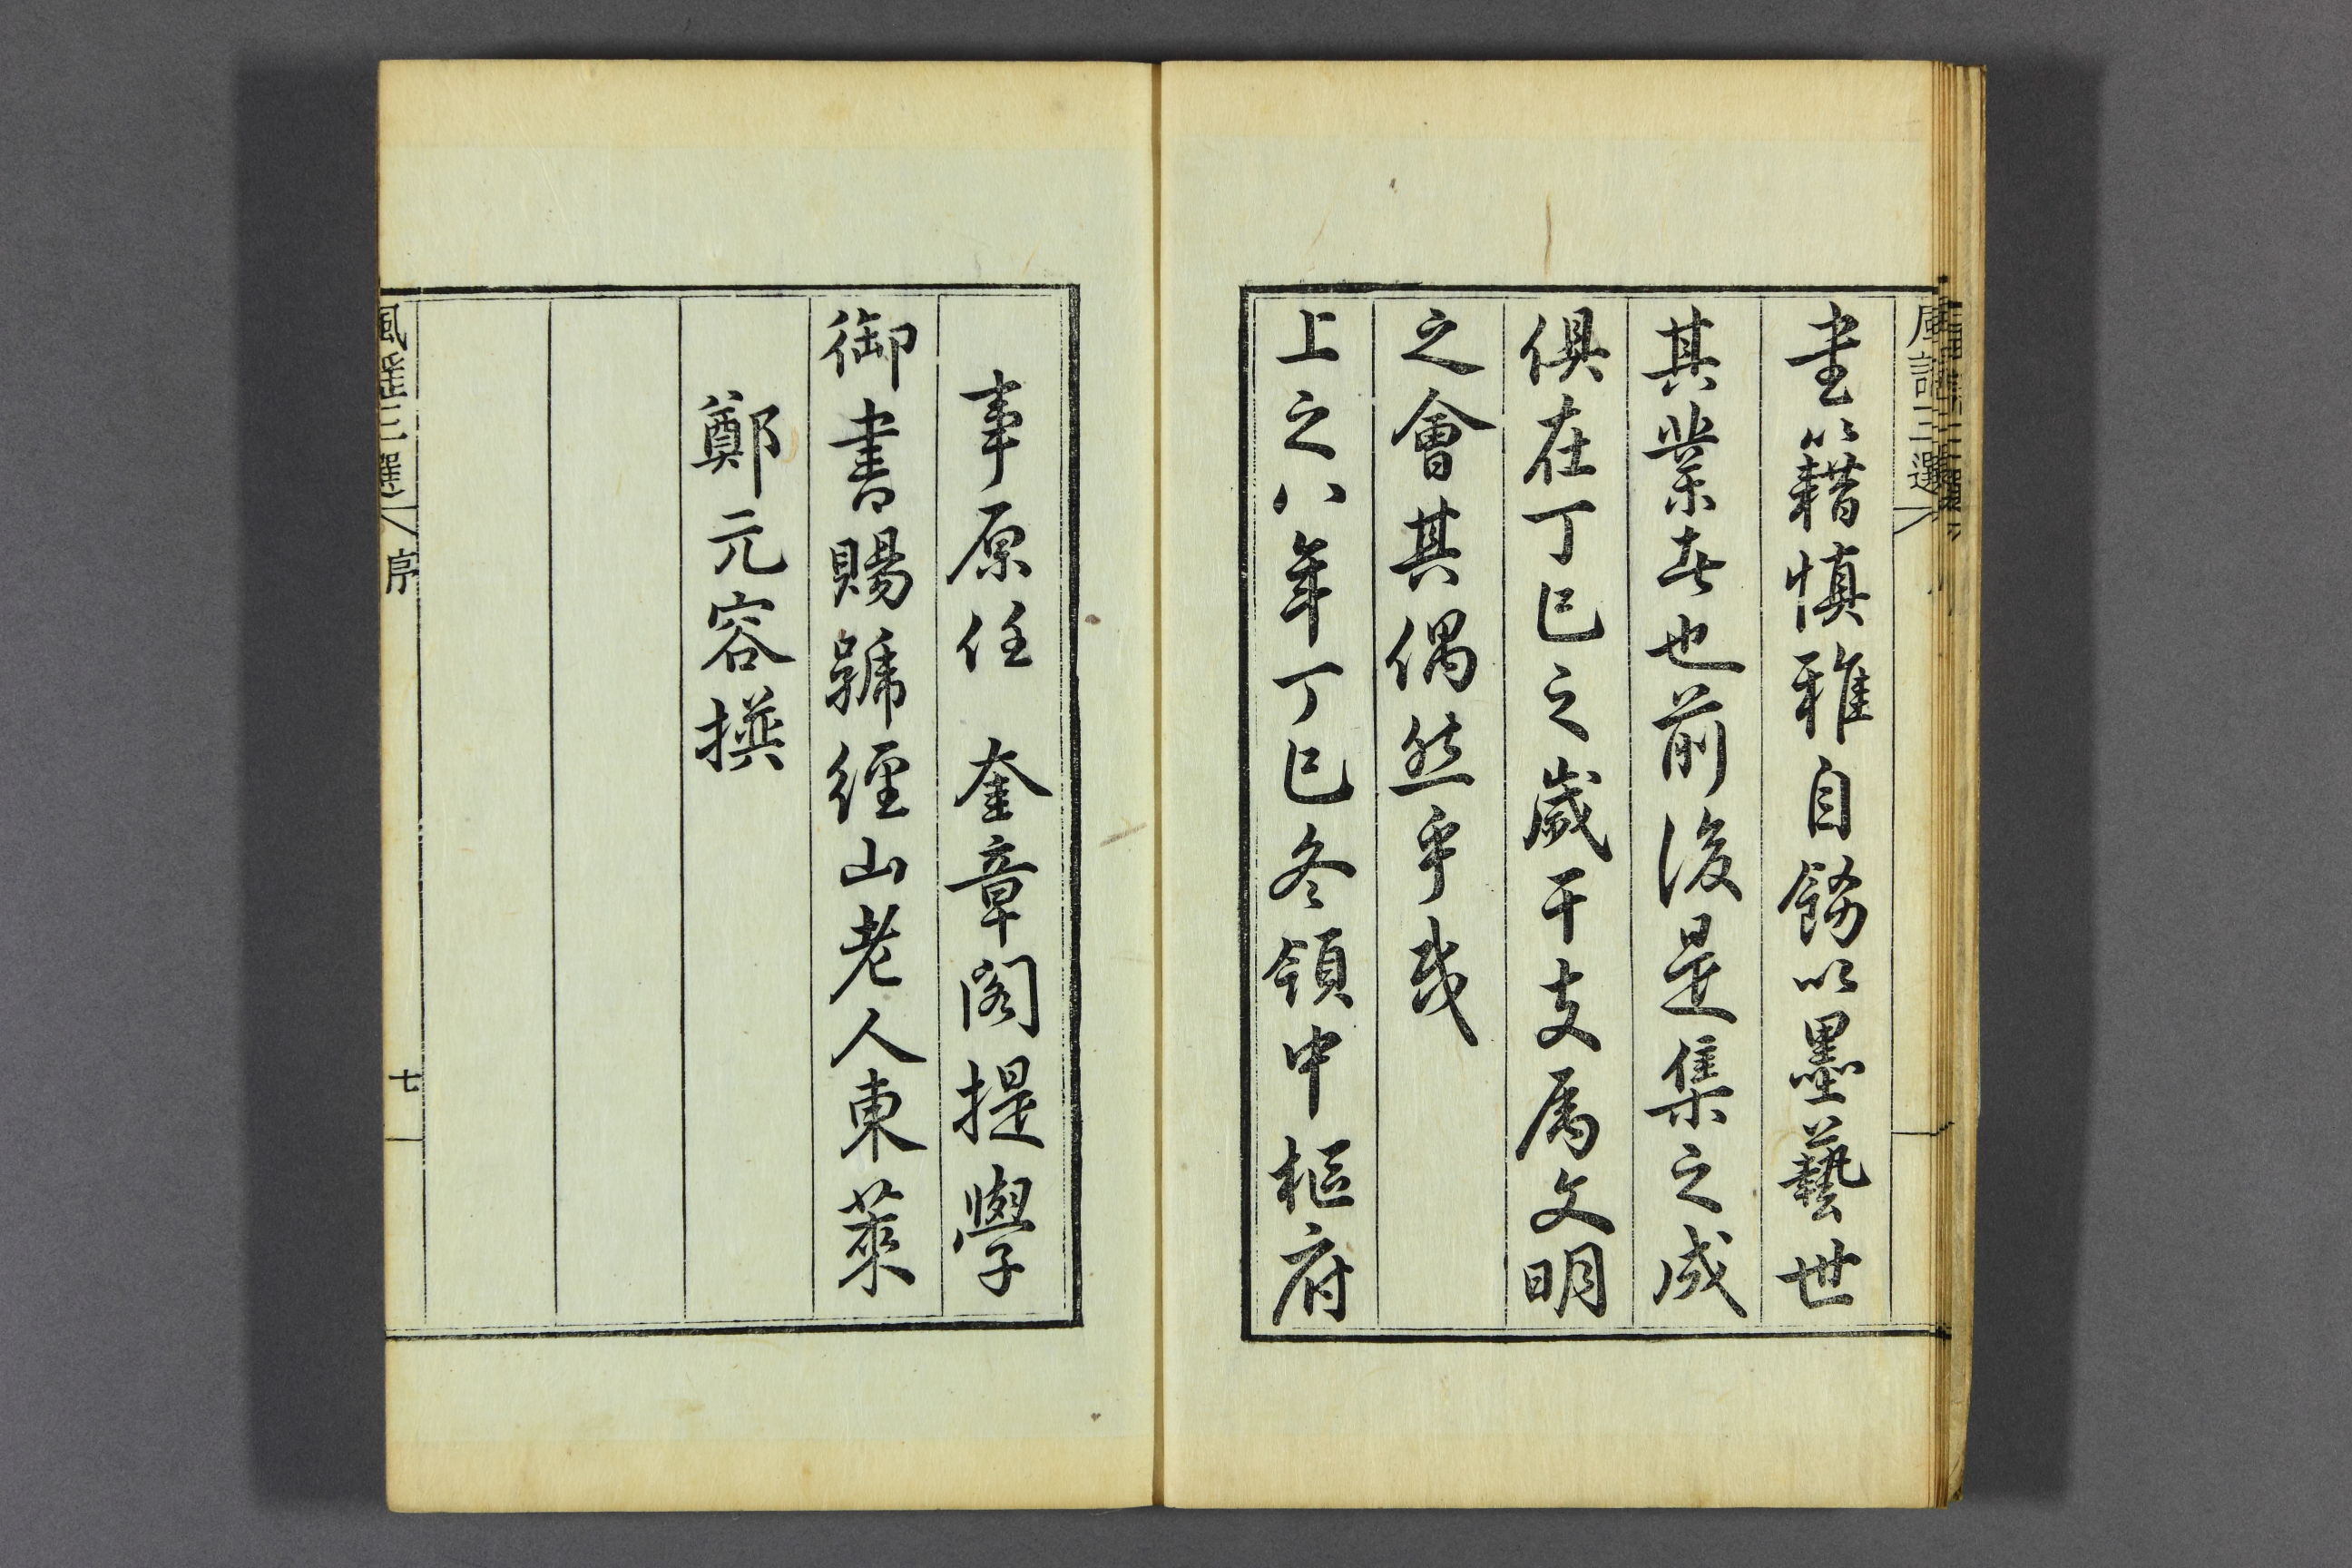 風謠三選
書籍慎雅自飭以墨藝世
其業者也前後是集之成
俱在丁巳之歲干支属文明
之會其偶然乎哉
上之八年丁巳冬領中樞府
事原任 奎章閣提學
御書賜號經山老人東萊
鄭元容撰
風謠三選 序 七